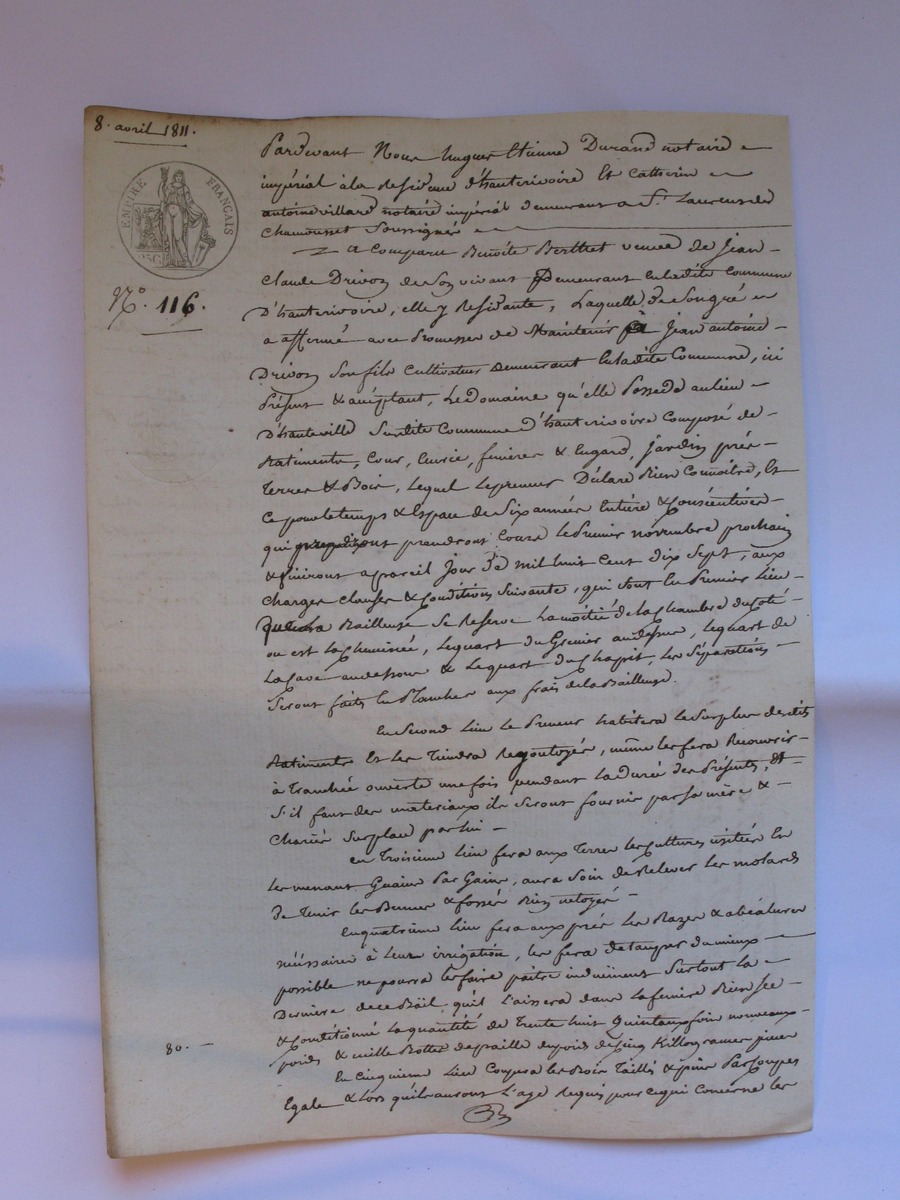 8. avril 1811.
EMPIRE FRANÇAIS
25C
N.° 116.
Pardevant Nous hugues Etienne Durand notaire
impérial à la Residence d'hauterivoire Et Catherin
antoine villard notaire impérial demeurant a S.t Laurent de
Chamousset Soussignés
a Comparu Benoite Berthet veuve de Jean
Claude Drivon de Son vivant Demeurant Enladite Commune
D'hauterivoire, elle y Residante, Laquelle de Songré
a affermé avec Promesse de Maintenir à Jean antoine
Drivon Son fils Cultivateur Demeurant Enladite Commune, ici
Présent & acceptant, Le Domaine qu'elle Possede au lieu
D'hauteville Susdite Commune D'hauterivoire Composé de
Batiments, Cour, Curie, finieres & Eugard, Jardin, prés
Terres & Bois, Lequel Le preneur Déclare Bien Connoitre, Et
Ce pour le temps & Espace de Six années Entiere & Consécutives
qui prendront Cours le Premier novembre prochain
& finiront apareil Jour de mil huit Cent Dix Sept, aux
Charges Clauses & Conditions Suivante, qui sont En Premier Lieu
que la Bailleuse Se Reserve La moitié de la Chambre du Coté
ou est la Cheminée, Le quart du Grenier au dessus, Le quart de
La Cave au dessous & Le quart du Chapit, Les Séparations
Seront faites En Plancher aux frais de la Bailleuse.
En Second Lieu Le Preneur habitera Le Surplus desdits
Batiments Et Les Tiendra Regoutoyés, même les fera Recouvrir
à Tranchée ouverte une fois pendant La durée des Présentes, Et
S'il faut des matériaux ils Seront fournis par Sa mère &
Chariés Sur place par lui
en Troisieme Lieu fera aux Terres les Cultures usitées En
Les menant Guain Par Gain, aura Soin de Relever Les molards
De Tenir Les Bennes & fossés Bien netoyés
En quatrieme Lieu fera aux prés Les Razes & abéalures
nécéssaires à Leur irrigation, les fera détauper du mieux
possible ne pourra les faire paître induëment Surtout La
Derniere de ce Bail qu'il Laissera dans La feniere Bien Sec
& Conditionné La quantité de Trente huit Quintaux foin nouveaux
80. poids & mille Bottes de paille du poids de Cinq Killogrames piece
En Cinquieme Lieu Coupera les Bois Taillis & pins Par Coupes
Egale & Lors qu'ils auront L'age Requis pour ce qui Concerne les